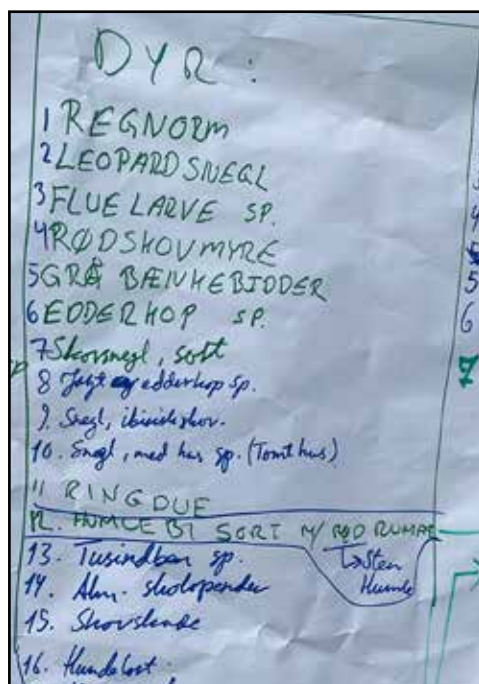 DYR :
1 REGNORM
2 LEOPARDSNEGL
3 FLUELARVE SP.
4 RØD SKOVMYRE
5 GRÅ BÆNKEBIDDER
6 EDDERKOP SP.
7 Skovsnegl, sort
8 Jagt edderkop sp.
9. Snegl,
10. Snegl, med hus sp. (Tomt hus)
11 RINGDUE
12. HUMLEBI SORT M/ RØD RUMPE
→ Sten Humle
13. Tusindben sp.
14. Alm. skolopender
15. Skovskade
16.